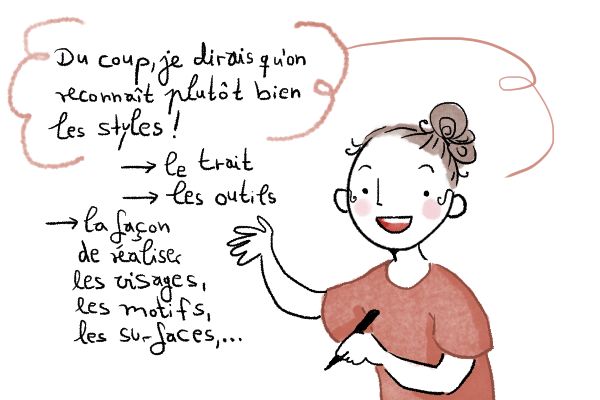 Du coup, je dirais qu'on
reconnaît plutôt bien
les styles !
→ le trait
→ les outils
→ la façon
de réaliser
les visages,
les motifs,
les surfaces,...